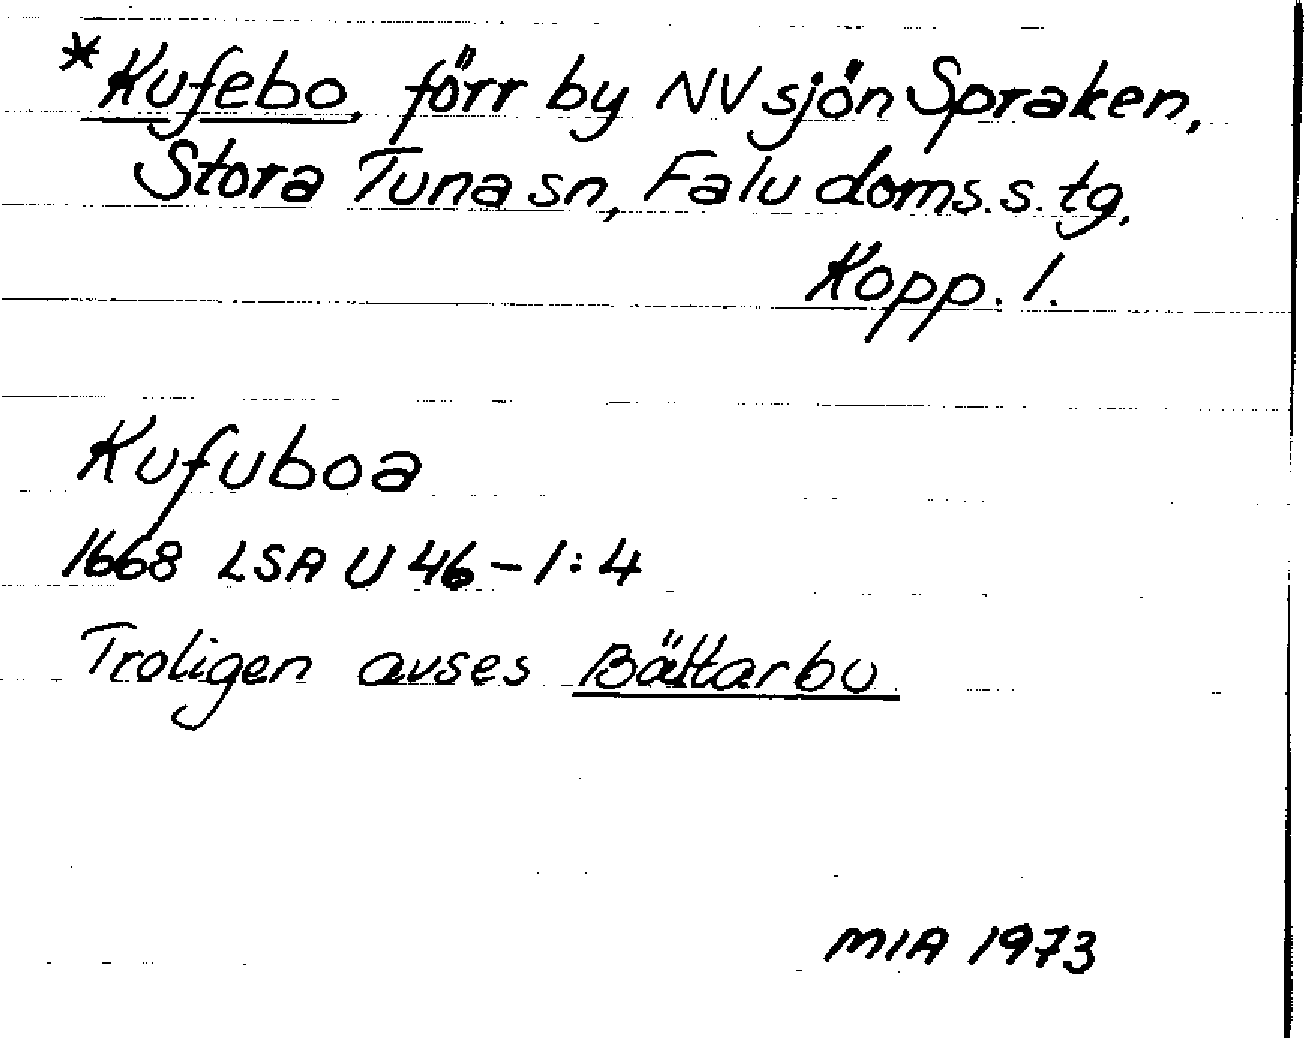 *Kufebo, förr by NV sjön Spraken,
Stora Tuna sn, Falu doms.s. tg.
Kopp. l.
Kufuboa
1668 LSA U 46-1:4
Troligen avses Bättarbo
MIA 1973